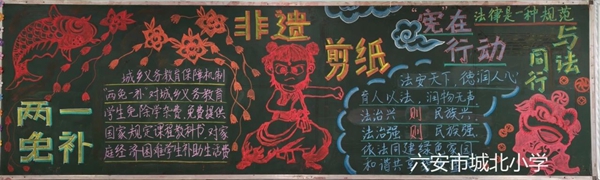 两免一补
城乡义务教育保障机制
"两免一补"对城乡义务教育
学生免除学杂费,免费提供
国家规定课程教科书,对家
庭经济困难学生补助生活费
非遗
剪纸
"宪"在
行动
法律是一种规范
与法
同行
法安天下,德润人心
育人以法,润物无声
法治兴 则 民族兴
法治强 则 民族强
依法同建绿色家园
和谐共
六安市城北小学